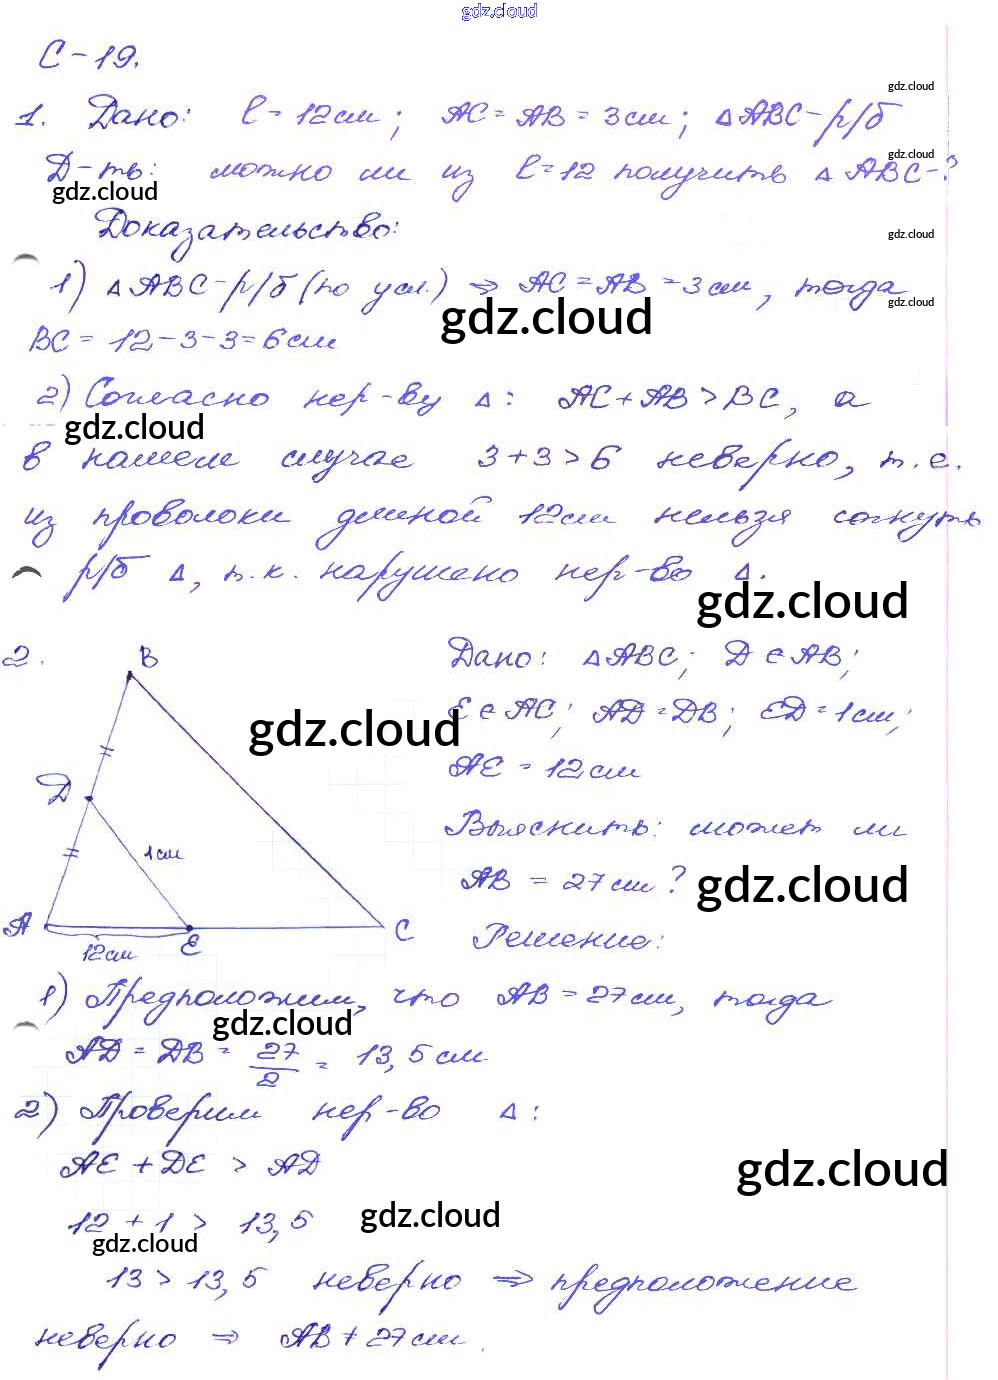 gdz.cloud
С-19.
1. Дано: l = 12 см; AC = AB = 3 см; △ABC-р/б
gdz.cloud
Д-ть: можно ли из l=12 получить △ABC-?
gdz.cloud
gdz.cloud
Доказательство:
gdz.cloud
1) △ABC-р/б (по усл.) ⇒ AC = AB = 3 см, тогда
gdz.cloud
gdz.cloud
BC = 12-3-3=6 см
2) Согласно нер-ву △: AC + AB > BC, а
gdz.cloud
в нашем случае 3+3>6 неверно, т.е.
из проволоки длиной 12 см нельзя согнуть
р/б △, т.к. нарушено нер-во △.
gdz.cloud
2.
B
D
1 см
A
12 см
E
C
gdz.cloud
Дано: △ABC; D ∈ AB;
E ∈ AC; AD = DB; ED = 1 см;
AE = 12 см
Выяснить: может ли
AB = 27 см?
gdz.cloud
Решение:
1) Предположим, что AB = 27 см, тогда
gdz.cloud
AD = DB = 27/2 = 13,5 см
2) Проверим нер-во △:
AE + DE > AD
gdz.cloud
12 + 1 > 13,5
gdz.cloud
gdz.cloud
13 > 13,5 неверно ⇒ предположение
неверно ⇒ AB ≠ 27 см.